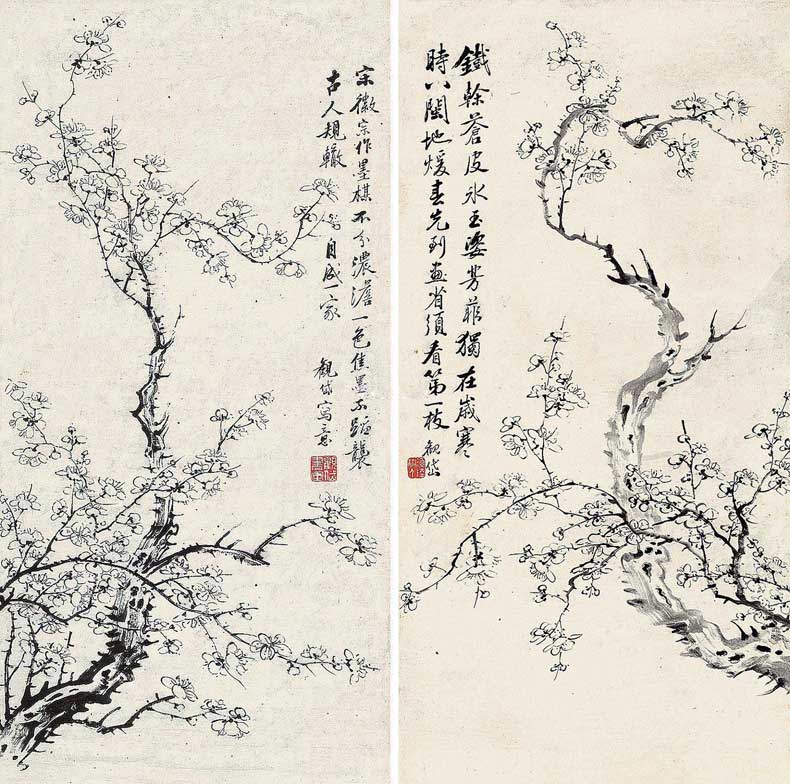 鐵榦蒼皮冰玉姿芳菲獨在歲寒
時八閩地煖春先到畫省須看第一枝 觀岱
宋徽宗作墨楳不分濃澹一色焦墨不蹈襲
古人規轍 自成一家
觀岱寫意